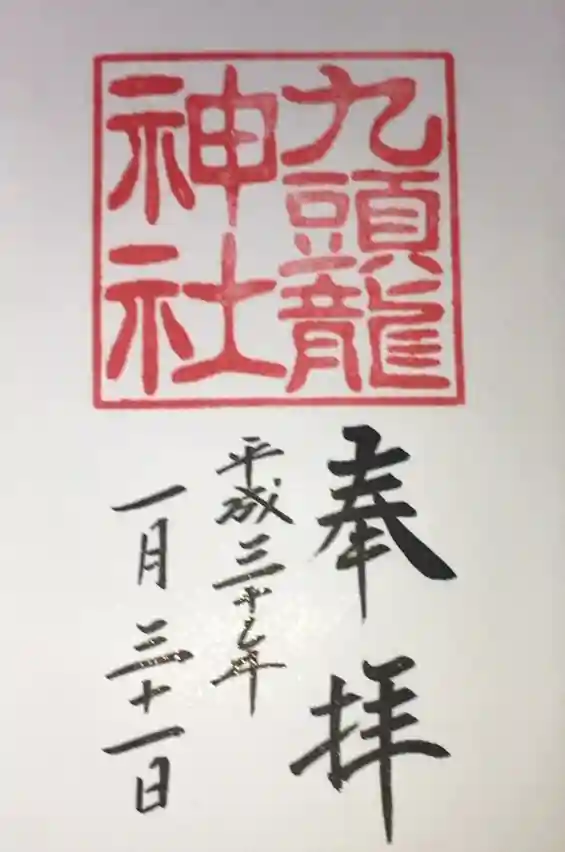 九頭龍
神社
奉拝
平成三十年
一月三十一日